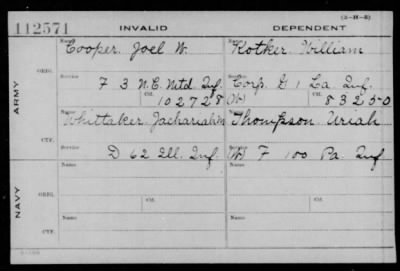 (3-H-5)
112571 INVALID DEPENDENT
Name Name
Cooper, Joel W. Kotker, William
ARMY
ORIG.
Service Service
F 3 N.E. Mtd Inf. Corp. G 1 La. Inf.
Ctf. Ctf.
102728 (W) 83250
Name Name
Whittaker, Zachariah M Thompson, Uriah
CTF.
Service Service
D 62 Ill. Inf. (W) F 100 Pa. Inf
NAVY
Name Name
ORIG.
Ctf. Ctf.
Name Name
CTF.